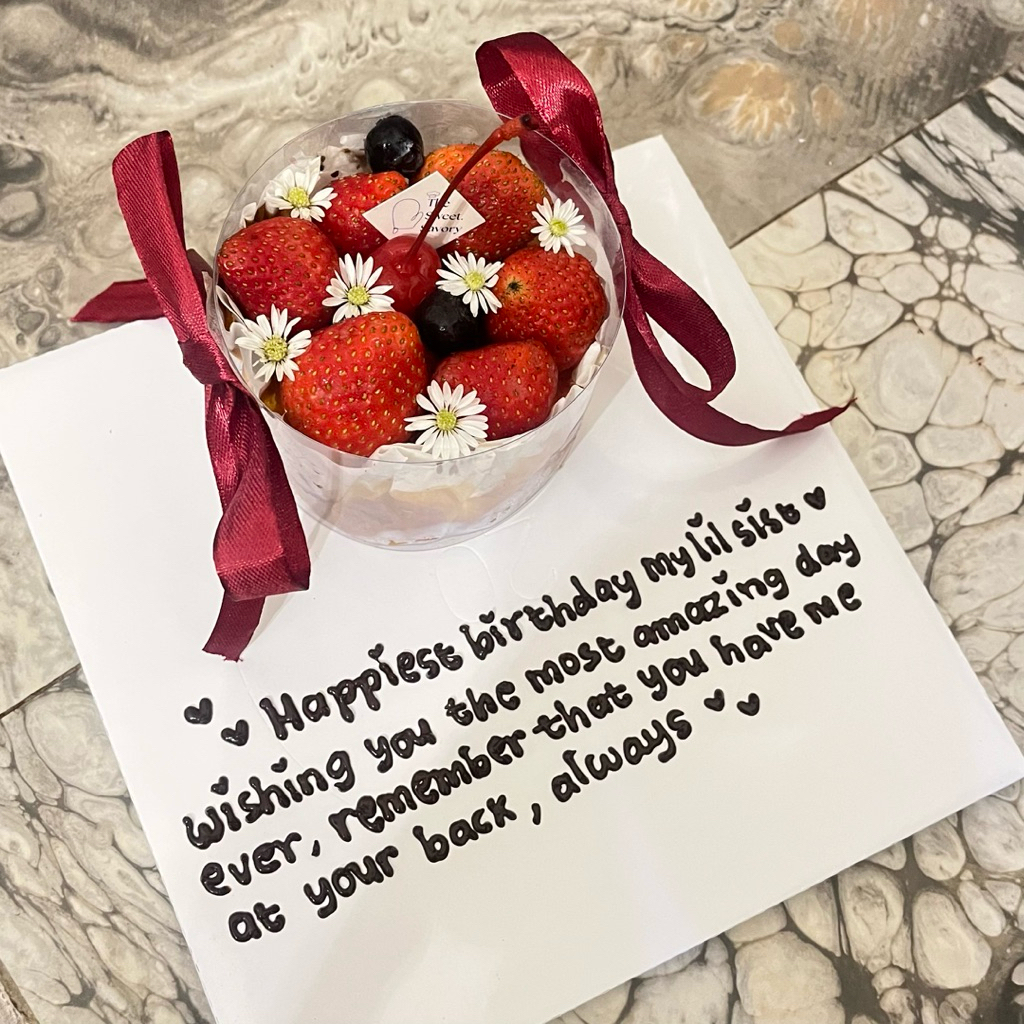 The
Sweet.
Savory
Happiest birthday my lil sist ♥
wishing you the most amazing day
ever, remember that you have me
at your back, always ♥ ♥